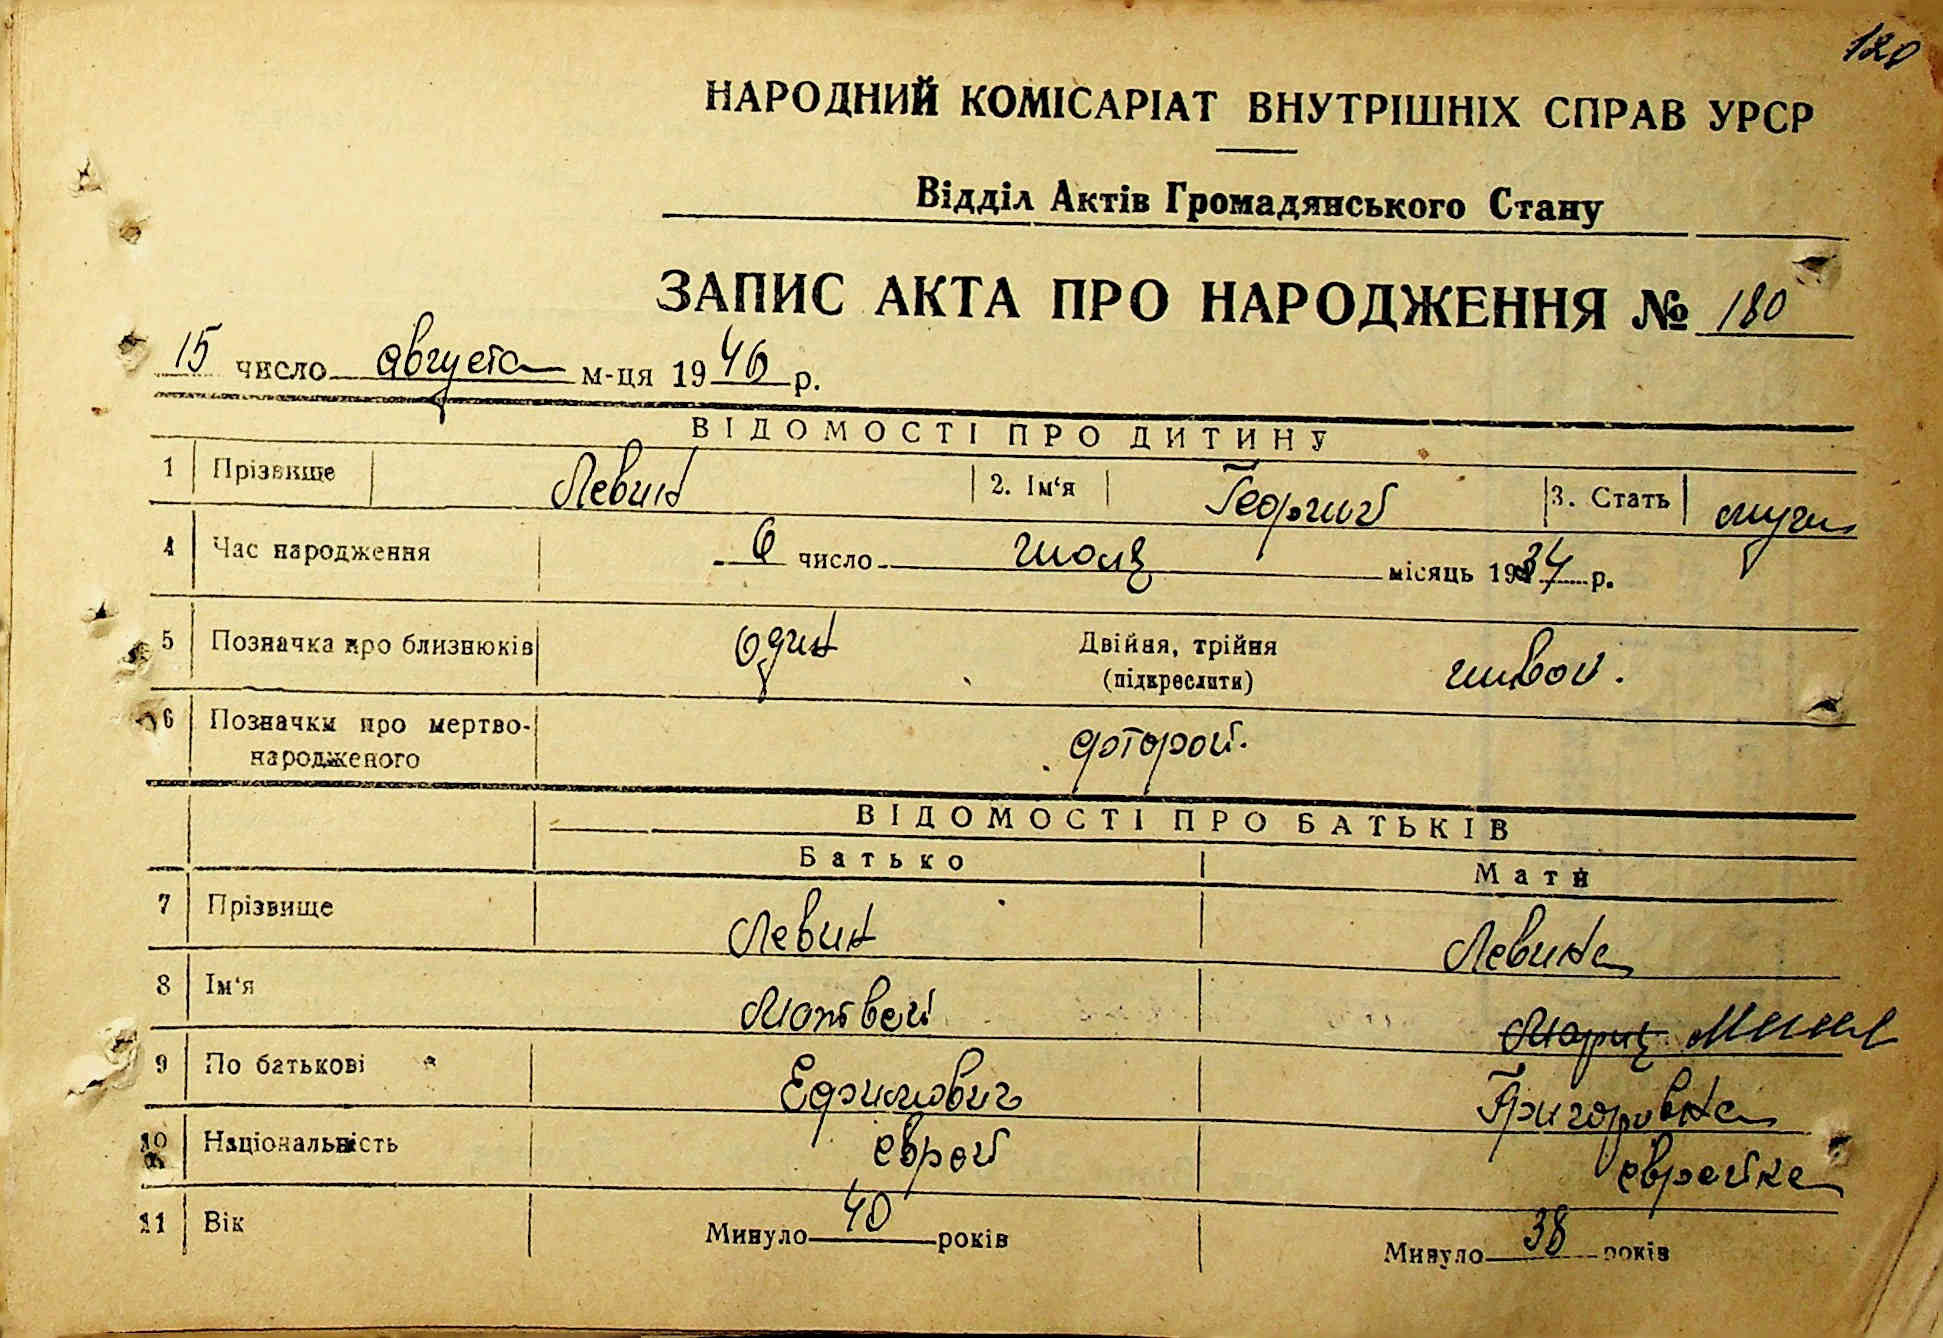 120
НАРОДНИЙ КОМІСАРІАТ ВНУТРІШНІХ СПРАВ УРСР
Відділ Актів Громадянського Стану
ЗАПИС АКТА ПРО НАРОДЖЕННЯ № 180
15 число августа м-ця 1946 р.
ВІДОМОСТІ ПРО ДИТИНУ
1 Прізвище Левин 2. Ім'я Георгий 3. Стать мужч
4 Час народження 6 число июля місяць 1934 р.
5 Позначка про близнюків один Двійня, трійня (підкреслити) живой.
6 Позначки про мертвонародженого второй.
ВІДОМОСТІ ПРО БАТЬКІВ
Батько Мати
7 Прізвище Левин Левина
8 Ім'я Матвей Мария
9 По батькові Ефимович Григоровна
10 Національність еврей еврейка
11 Вік Минуло 40 років Минуло 38 років